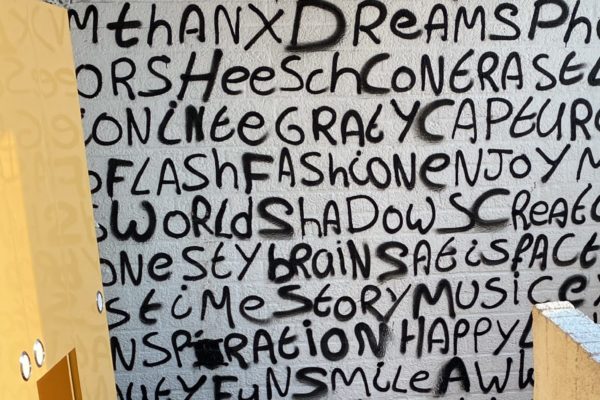 MthANXDReAMSPho
ORSHeeSchCONtRASt
iONiNteGRAtYCAPtUR
FLAShFAShiONeNJOYM
SWORLdShADOWSCReAt
ONeStYbRAiNSAtiSPACt
StiMeStORYMUSiCe
NSPiRAtiONHAPPY
utYFuNSMiLeAWW